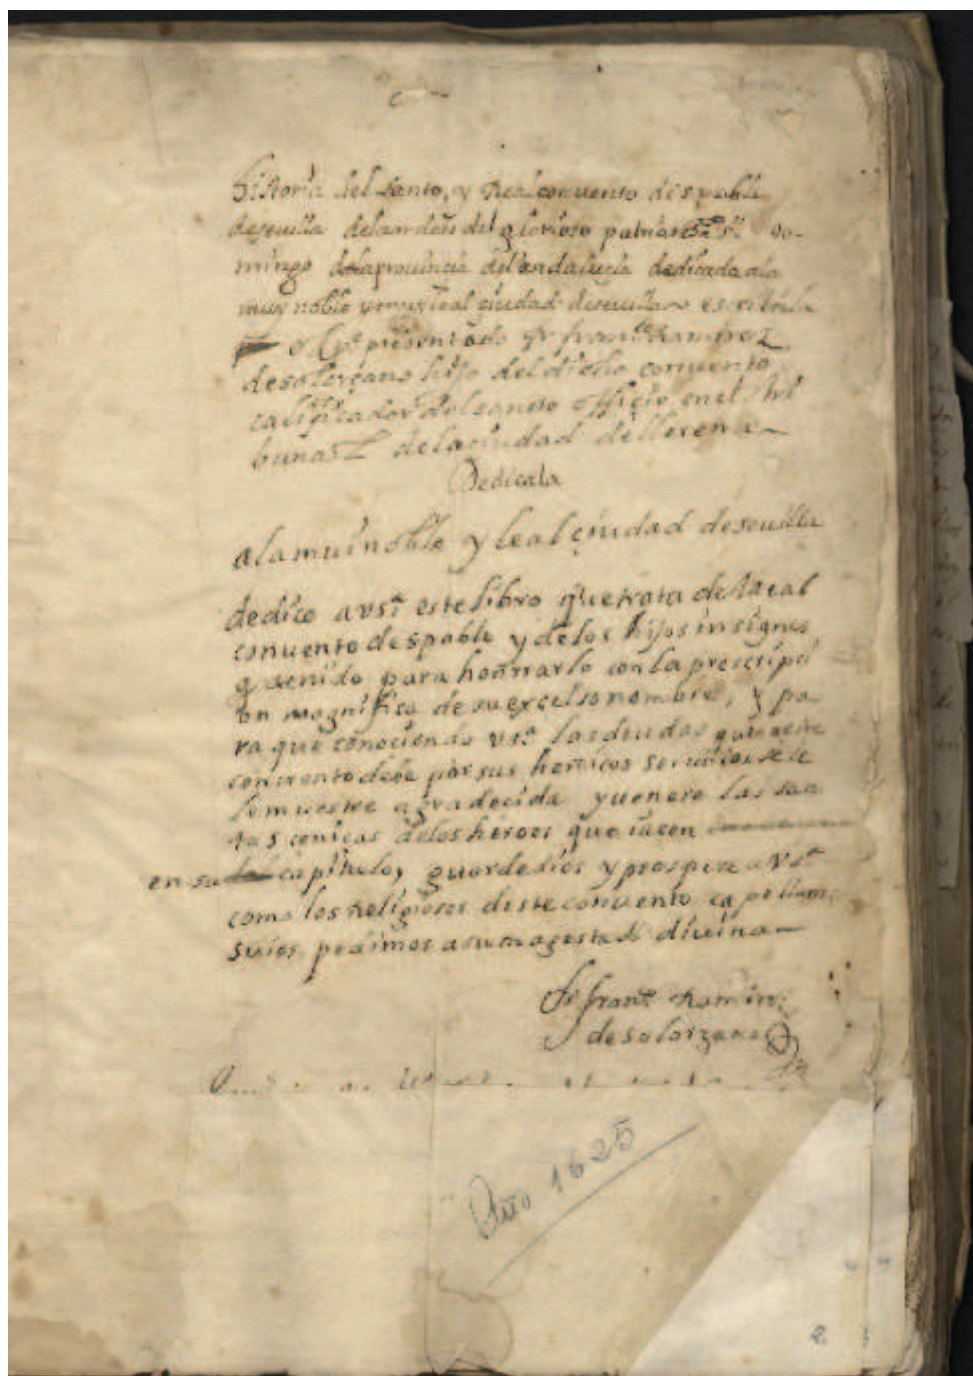 historia del santo, y Real conuento de s pablo
de seuilla del orden del glorioso patriarcha sto do-
mingo de la prouincia del andalucia dedicada a la
muy noble y muy leal ciudad de seuilla escribela
el pe presentado fr franco Ramirez
de solorzano hijo del dicho conuento
calificador del sancto officio en el tri
bunal de la ciudad de llerena
Dedicala
a la mui noble y leal çiudad de seuilla
dedico a vsa este libro que trata del Real
conuento de s pablo y de los hijos insignes
q a tenido para honrrarlo con la prescripci
on magnifica de su excelso nombre, y pa
ra que conociendo vsa las deudas que a este
conuento debe por sus heroicos seruicios se le
le muestre agradecida y uenere las san
tas ceniças de los heroes que iacen
en su capitulo, guarde dios y prospere a vsa
como los Religiosos deste conuento capellanes
suios pedimos a su magestad diuina
fr franco Ramirez
de solorzano
Año 1625
2